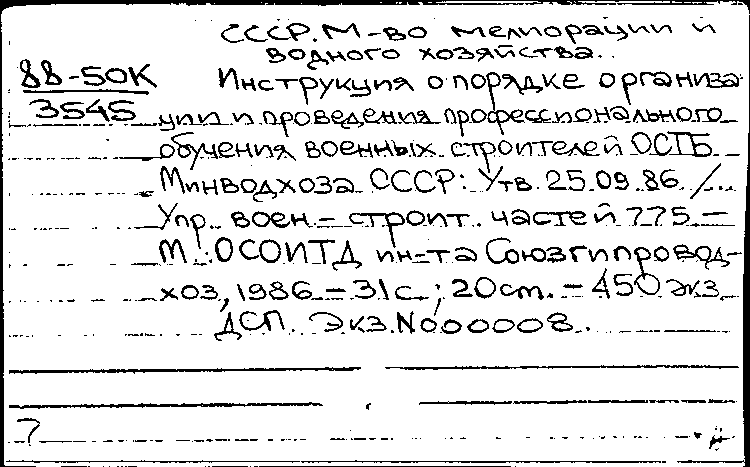 СССР. М-во мелиорации и
водного хозяйства.
88-50К
3545
Инструкция о порядке организа
ции и проведения профессионального
обучения военных строителей ОСТБ
Минводхоза СССР: Утв. 25.09.86 /...
Упр. воен-строит. частей 775.-
М.: ОСОИТД ин-та Союзгипровод-
хоз, 1986.-31с.; 20см.-450экз.
ДСП. Экз.№000008.
7